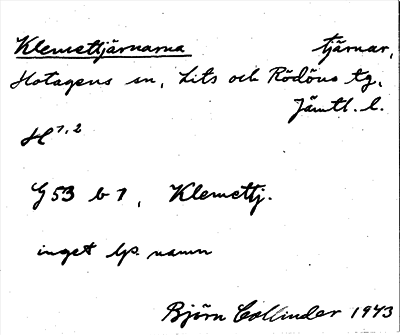 Klemettjärnarna tjärnar,
Hotagens sn, Lits och Rödöns tg,
Jämtl. l.
H 7,2
G 53 b 1, Klemettj.
inget lp. namn
Björn Collinder 1943